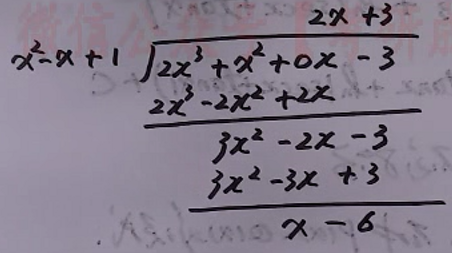 2x + 3
x² - x + 1 ) 2x³ + x² + 0x - 3
2x³ - 2x² + 2x
3x² - 2x - 3
3x² - 3x + 3
x - 6